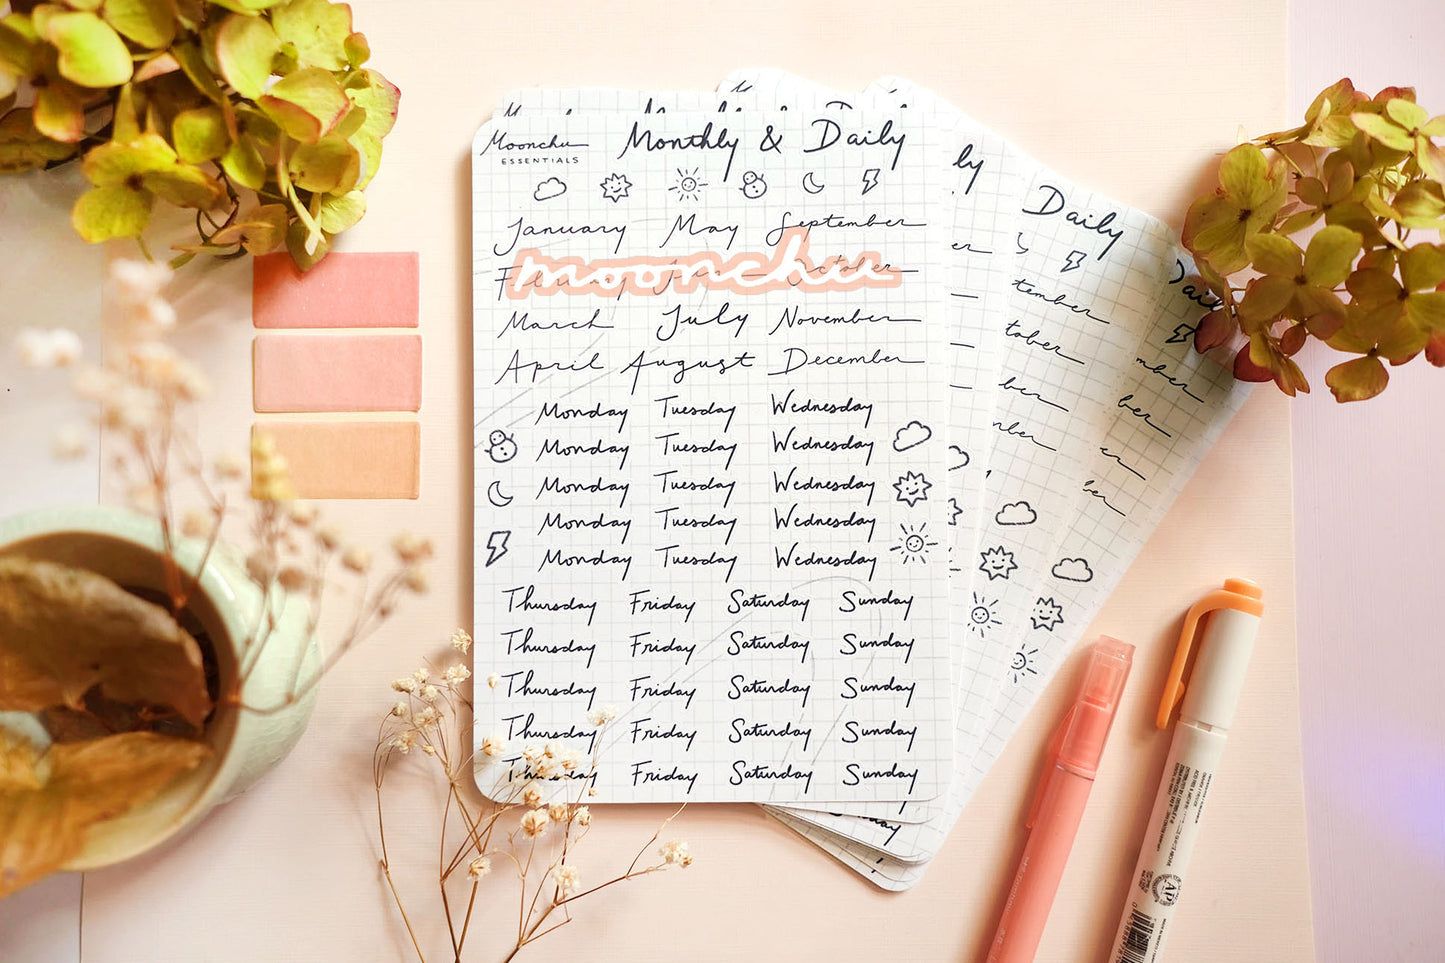 Moonchu Monthly & Daily
ESSENTIALS
January May September
moonchu
February June October
March July November
April August December
Monday Tuesday Wednesday
Monday Tuesday Wednesday
Monday Tuesday Wednesday
Monday Tuesday Wednesday
Monday Tuesday Wednesday
Thursday Friday Saturday Sunday
Thursday Friday Saturday Sunday
Thursday Friday Saturday Sunday
Thursday Friday Saturday Sunday
Thursday Friday Saturday Sunday
ly
Daily
tember
tober
ber
mber
Dai
mber
ber
er
ber
AP